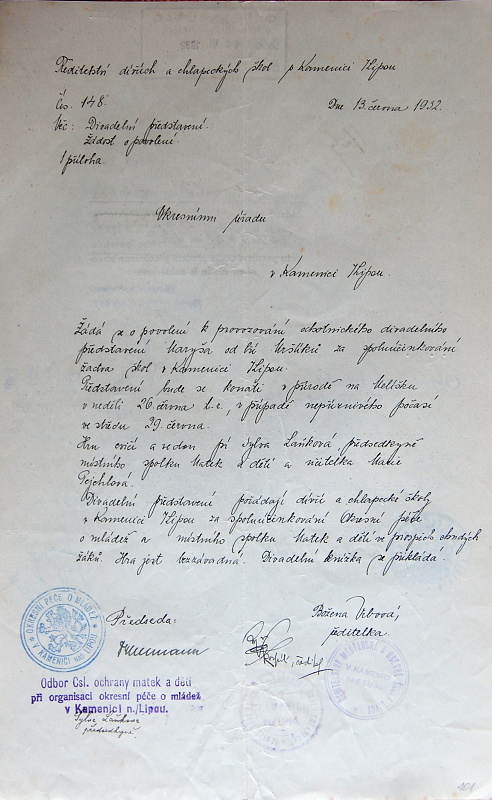 Ředitelství dívčích a chlapeckých škol v Kamenici n/Lipou
Čís. 148.
Dne 13. června 1932.
Věc: Divadelní představení.
Žádost o povolení.
1 příloha.
Okresnímu úřadu
v Kamenici n/Lipou.
Žádá se o povolení k provozování ochotnického divadelního
představení Maryša od bří Mrštíků za spoluúčinkování
žactva škol v Kamenici n/Lipou.
Představení bude se konati v přírodě na
v neděli 26. června t. r., v případě nepříznivého počasí
ve středu 29. června.
Hru cvičí a vedou pí Sylva Laňková předsedkyně
místního spolku Matek a dětí a učitelka Marie
Divadelní představení pořádají dívčí a chlapecké školy
v Kamenici n/Lipou za spoluúčinkování Okresní péče
o mládež a místního spolku Matek a dětí ve prospěch chudých
žáků. Hra jest bezzávadná. Divadelní knížka se přikládá.
Předseda:
Božena Vrbová,
ředitelka.
OKRESNÍ PÉČE O MLÁDEŽ
V KAMENICI NAD LIPOU
Odbor Čsl. ochrany matek a dětí
při organisaci okresní péče o mládež
v Kamenici n./Lipou.
Sylva Laňková
předsedkyně
101